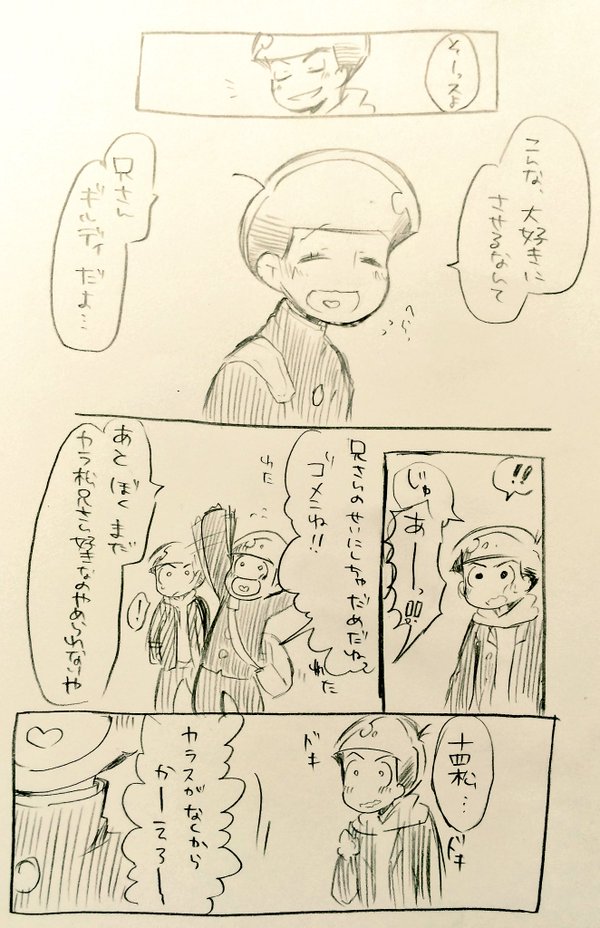 そーっスよ
こんな、大好きに
させるなんて
兄さん
ギルティだよ…
へら
!!
じゃ
あーっ!!
兄さんのせいにしちゃだめだねっ
ゴメンね!!
わた
わた
あと ぼく まだ
カラ松兄さん好きなのやめられないや
!
十四松…
ドキ
ドキ
カラスがなくから
かーえろー